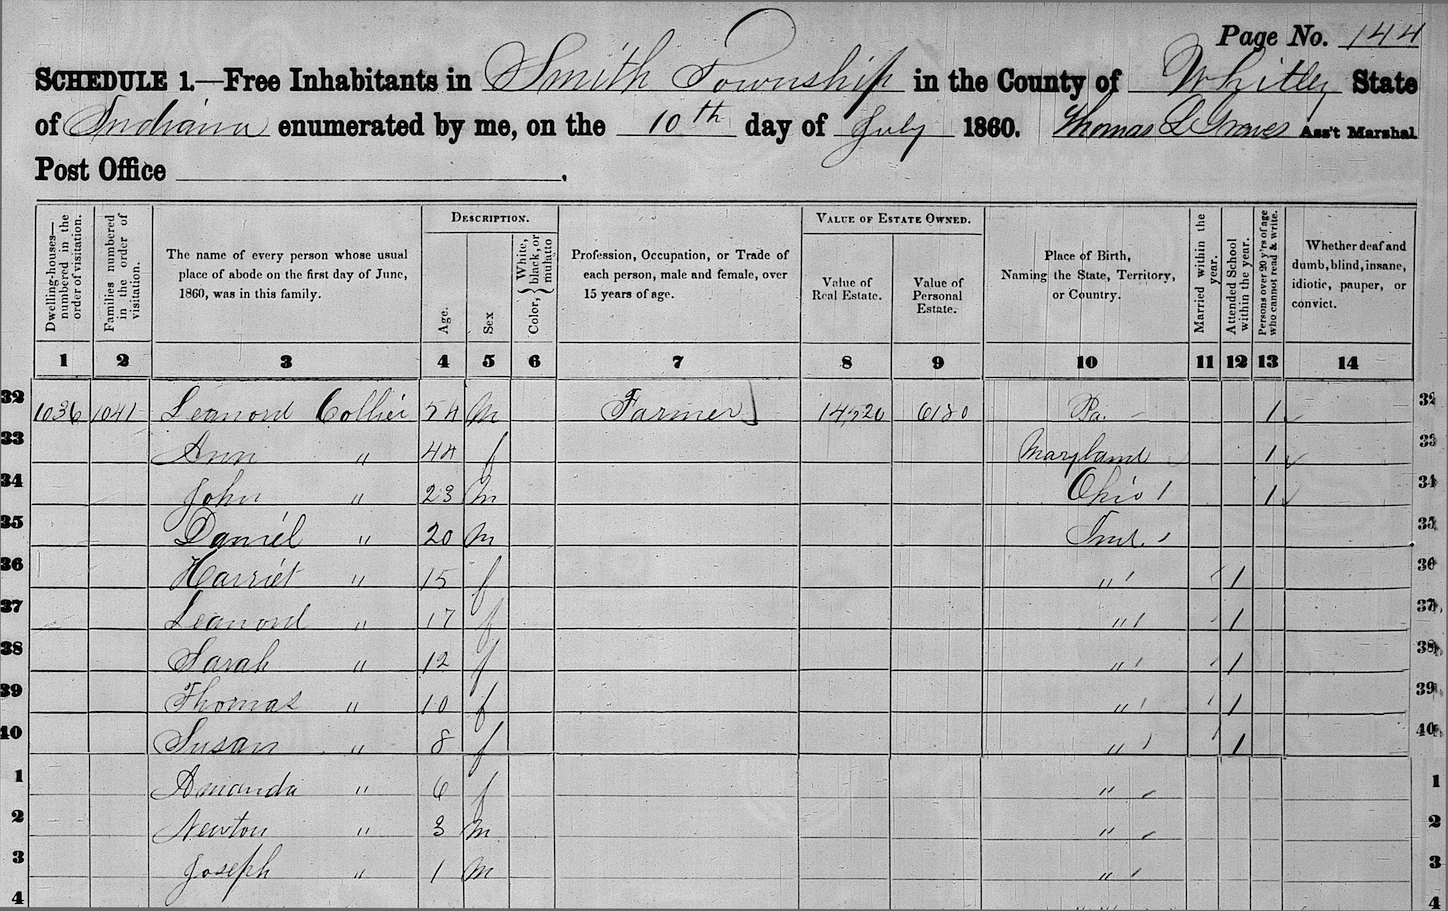 Page No. 144
SCHEDULE 1.—Free Inhabitants in Smith Township in the County of Whitley State
of Indiana enumerated by me, on the 10th day of July 1860. Thomas L Graves Ass't Marshal
Post Office
Dwelling-houses—numbered in the order of visitation.
Families numbered in the order of visitation.
The name of every person whose usual place of abode on the first day of June, 1860, was in this family.
DESCRIPTION.
Age.
Sex
Color, { White, black, or mulatto
Profession, Occupation, or Trade of each person, male and female, over 15 years of age.
VALUE OF ESTATE OWNED.
Value of Real Estate.
Value of Personal Estate.
Place of Birth, Naming the State, Territory, or Country.
Married within the year.
Attended School within the year.
Persons over 20 y'rs of age who cannot read & write.
Whether deaf and dumb, blind, insane, idiotic, pauper, or convict.
1 2 3 4 5 6 7 8 9 10 11 12 13 14
32 1036 1041 Leanord Collier 54 m Farmer 14,720 6180 Pa. 1 32
33 Ann " 44 f Maryland 1 33
34 John " 23 m Ohio 1 34
35 Daniel " 20 m Ind. 35
36 Harriet " 15 f " 1 36
37 Leanord " 17 f " 1 37
38 Sarah " 12 f " 1 38
39 Thomas " 10 f " 1 39
10 Susan " 8 f " 1 40
1 Amanda " 6 f " 1
2 Newton " 3 m " 2
3 Joseph " 1 m " 3
4 4